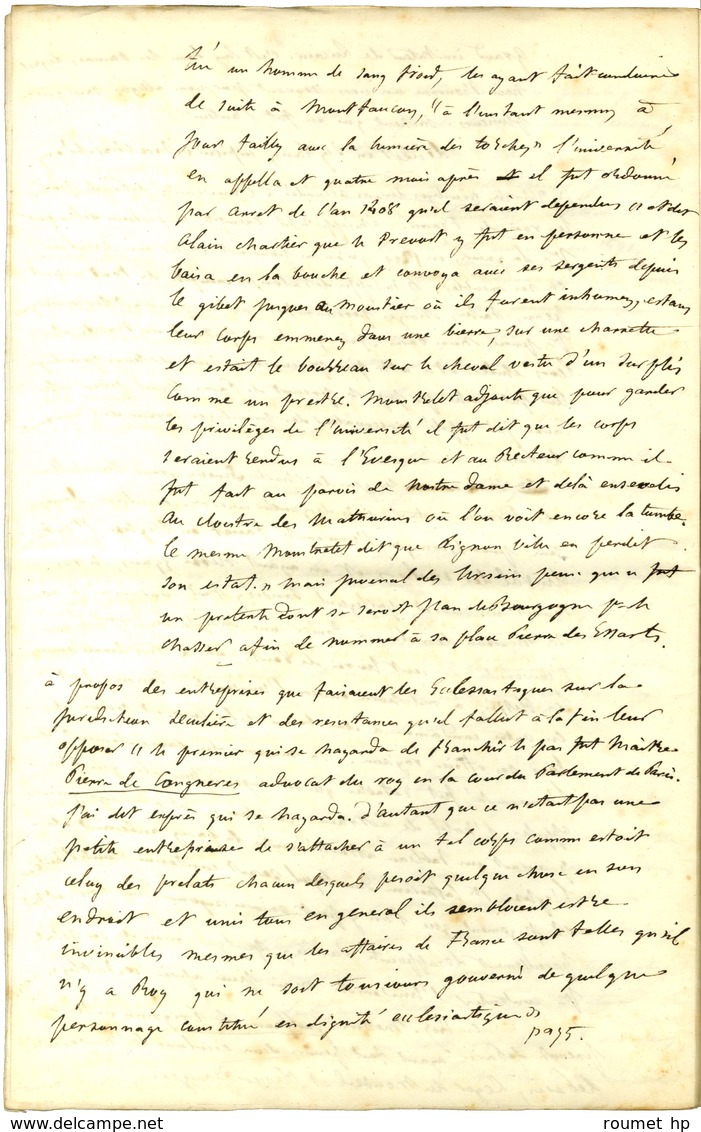 tué un homme de sang froid, les ayant fait conduire
de suite à Montfaucon, "à l'instant mesmes à
jour failly avec la lumière des torches" l'université
en appella et quatre mois après il fut ordonné
par arret de l'an 1408 qu'il seraient dependus "et dit
Alain Chartier que le Prevost y fut en personne et les
baisa en la bouche et convoya avec ses sergents depuis
le gibet jusques au Moustier où ils furent inhumez, estans
leur corps emmenez dans une bierre, sur une charrette
et estait le bourreau sur le cheval vestu d'un surplis
comme un prestre. Monstrelet adjoute que pour garder
les privilèges de l'université il fut dit que les corps
seraient rendus à l'Evesque et au Recteur comme il
fut fait au parvis de Nostre Dame et delà ensevelis
au cloistre des Mathurins où l'on voit encore la tumbe.
le mesme Monstrelet dit que Tignonville en perdit
son estat." mais Juvenal des Ursins pense que ce fut
un pretexte dont se servit Jean de Bourgogne pr le
chasser afin de nommer à sa place Pierre des Essarts.
à propos des entreprises que faisaient les Eclessiastiques sur la
juridiction séculière et des resistances qu'il fallut à la fin leur
opposer "le premier qui se hazarda de franchir le pas fut Maitre
Pierre de Congneres advocat du roy en la cour du Parlement de Paris.
J'ai dit exprès qui se hazarda. d'autant que ce n'etait pas une
petite entreprise de s'attacher à un tel corps comme estoit
celuy des prelats chacun desquels pesoit quelque chose en son
endroit et unis tous en general ils sembloient estre
invincibles mesmes que les affaires de France sont telles qu'il
n'y a Roy qui ne soit tousiours gouverné de quelque
personnage constitué en dignité ecclesiastique"
pag 5.
roumet hp